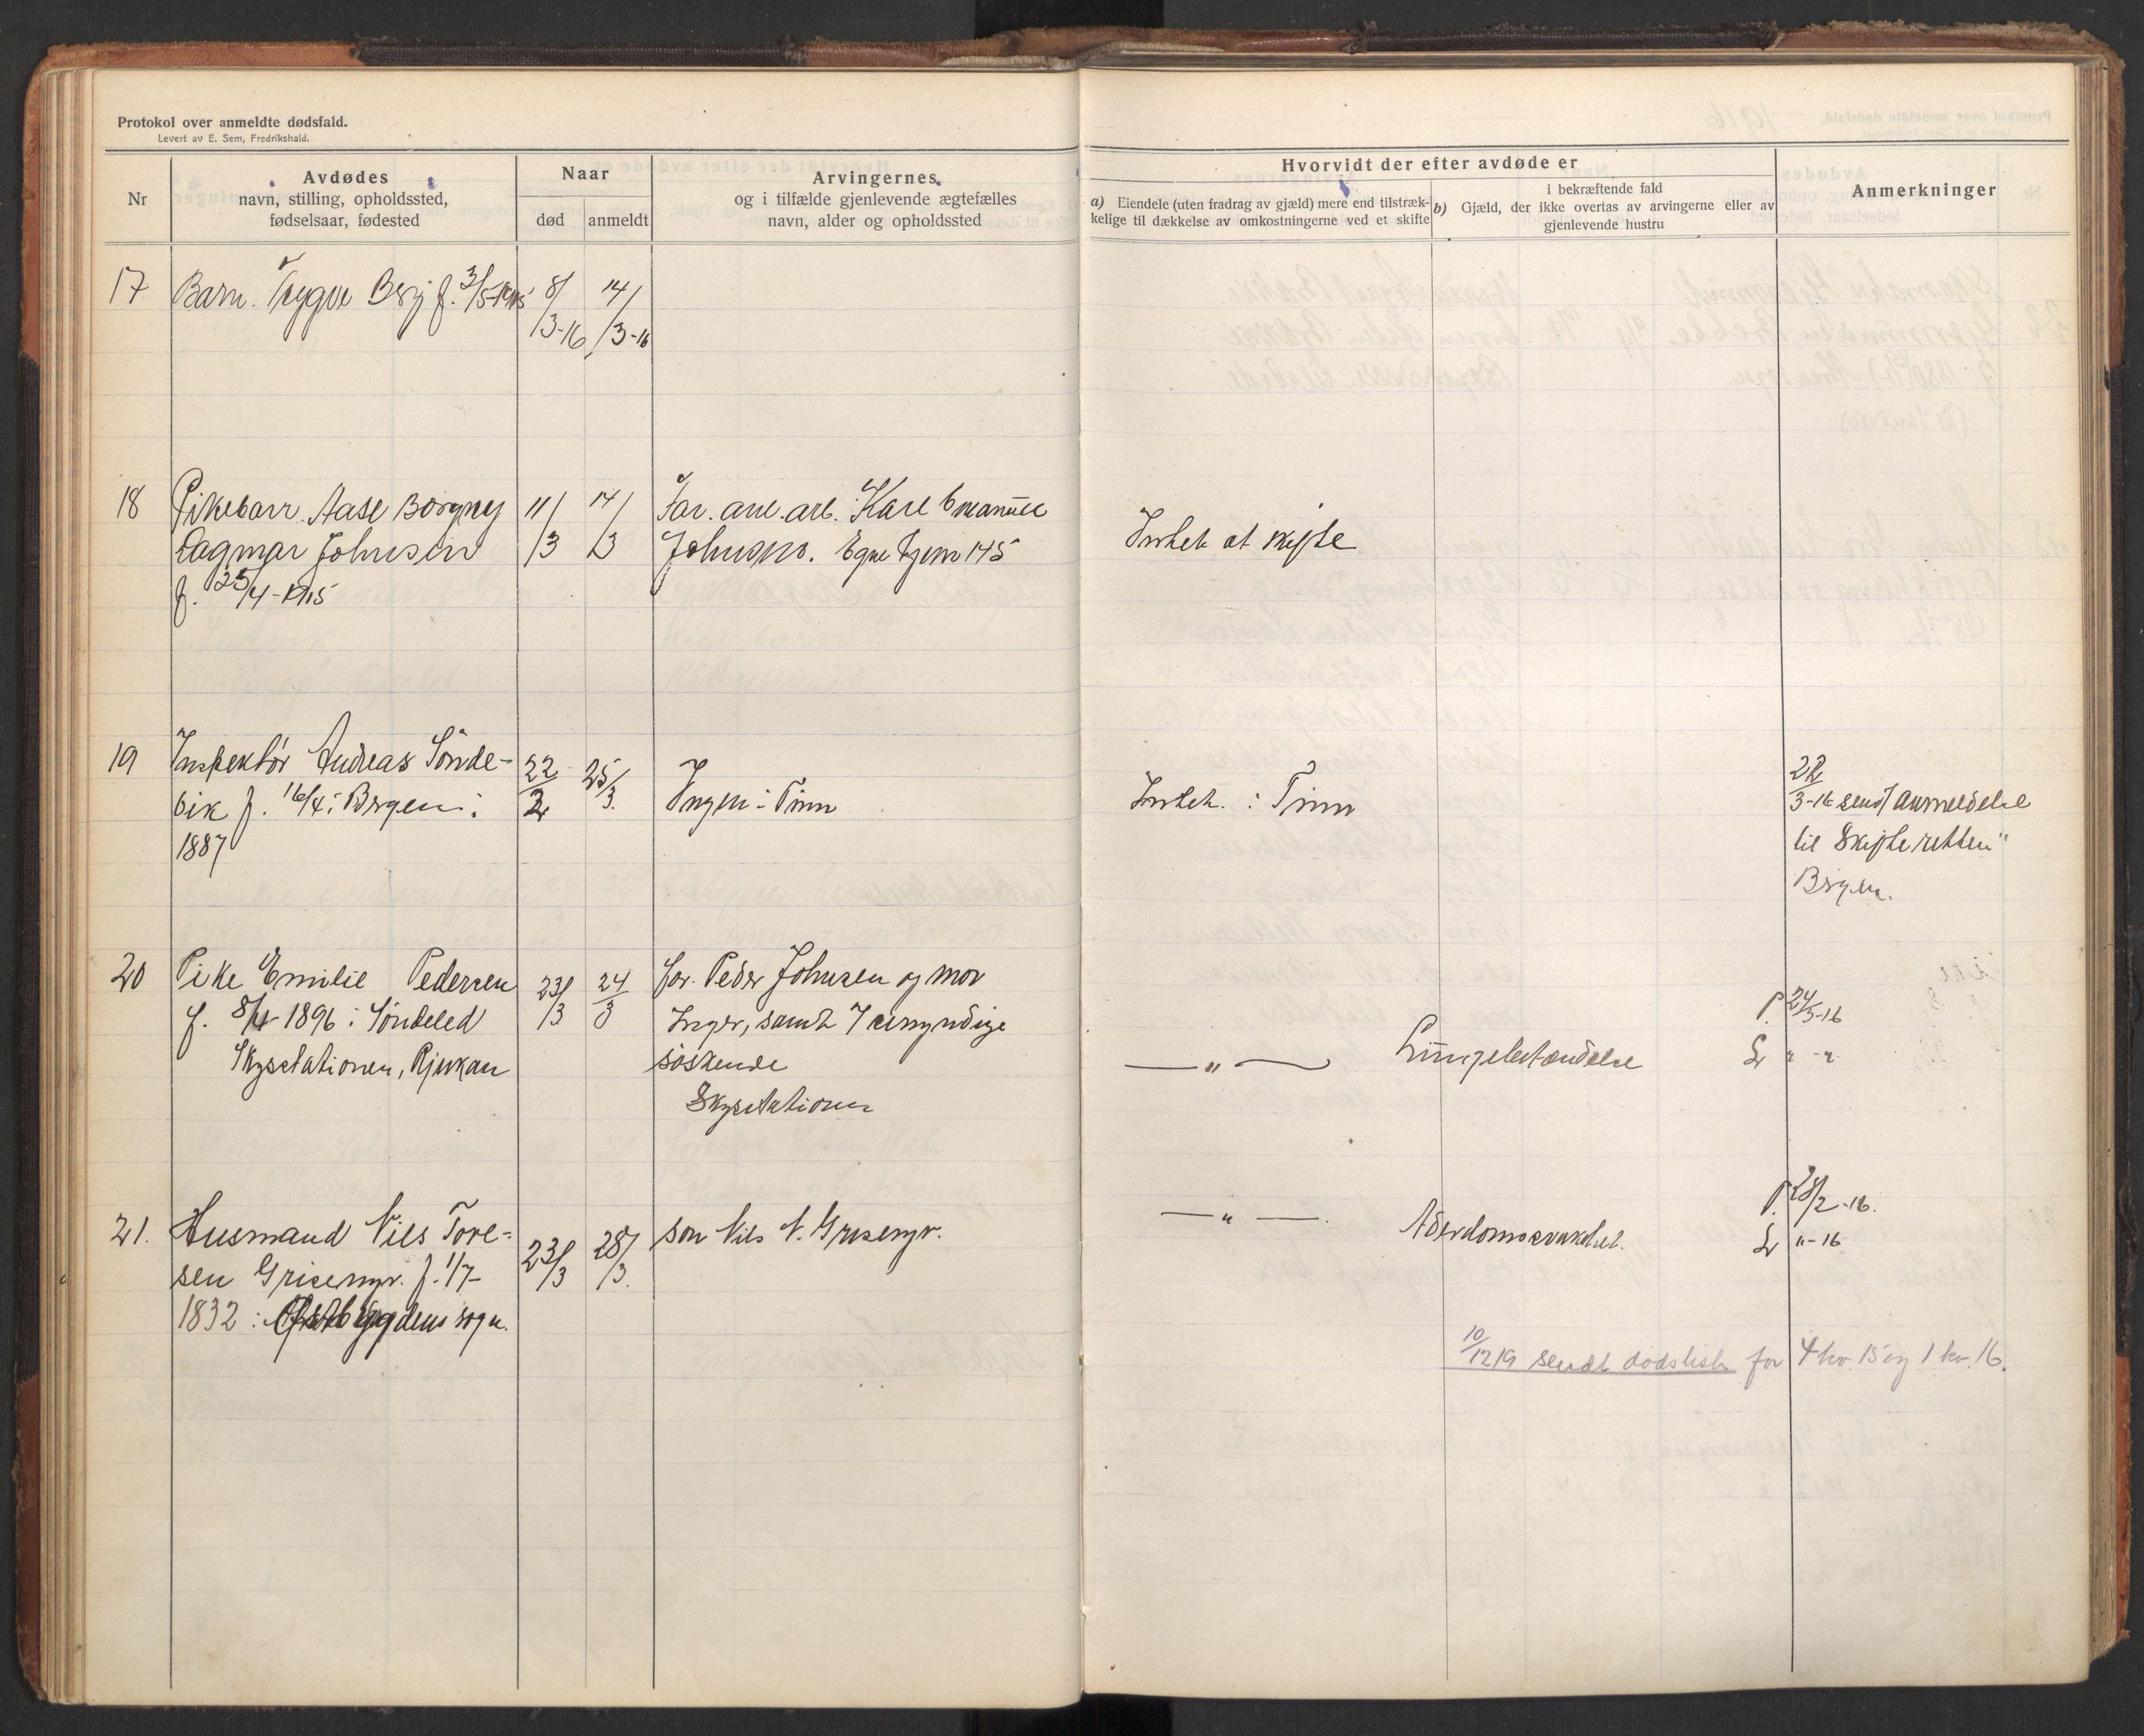 Protokol over anmeldte dødsfald.
Levert av E. Sem, Fredrikshald.
Nr
Avdødes
navn, stilling, opholdssted,
fødselsaar, fødested
Naar
død
anmeldt
Arvingernes
og i tilfælde gjenlevende ægtefælles
navn, alder og opholdssted
Hvorvidt der efter avdøde er
a) Eiendele (uten fradrag av gjæld) mere end tilstræk-
kelige til dækkelse av omkostningerne ved et skifte
i bekræftende fald
b) Gjæld, der ikke overtas av arvingerne eller av
gjenlevende hustru
Anmerkninger
17
Barn. Trygve Berg f. 3/5-1915
8/3-16
14/3-16
18
Pikebarn Aase Borgny
Dagmar Johnsen
f. 25/4-1915
11/3
14/3
Far. anl.arb. Karl Emanuel
Johnsen. Egne hjem 145
Intet at skifte
19
Inspektør Andreas Sønde-
vik f. 16/4 i Bergen.
1887
22/2
25/3.
Ingen i Tinn
Intet i Tinn
22/3-16 sendt anmeldelse
til Skifteretten
Bergen.
20
Pike Emilie Pedersen
f. 8/4-1896 i Søndeled
Skysstationen, Rjukan
23/3
24/3
far Peder Johnsen og mor
Inger, samt 7 umyndige
søskende
Skysstationen
— " —
Lungebetændelse
P. 24/3-16
L " - "
21.
Husmand Nils Tore-
sen Grisemyr. f. 1/7-
1832 i Østbygdens sogn.
23/3
28/3.
søn Nils N. Grisemyr.
— " —.
Alderdomssvakhet.
P. 28/2-16.
L "-16
10/12 19 sendt dødsliste for 4 kv. 15 og 1 kv. 16.